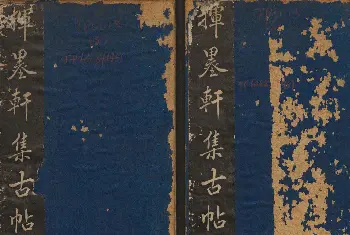 揮墨軒集古帖
揮墨軒集古帖